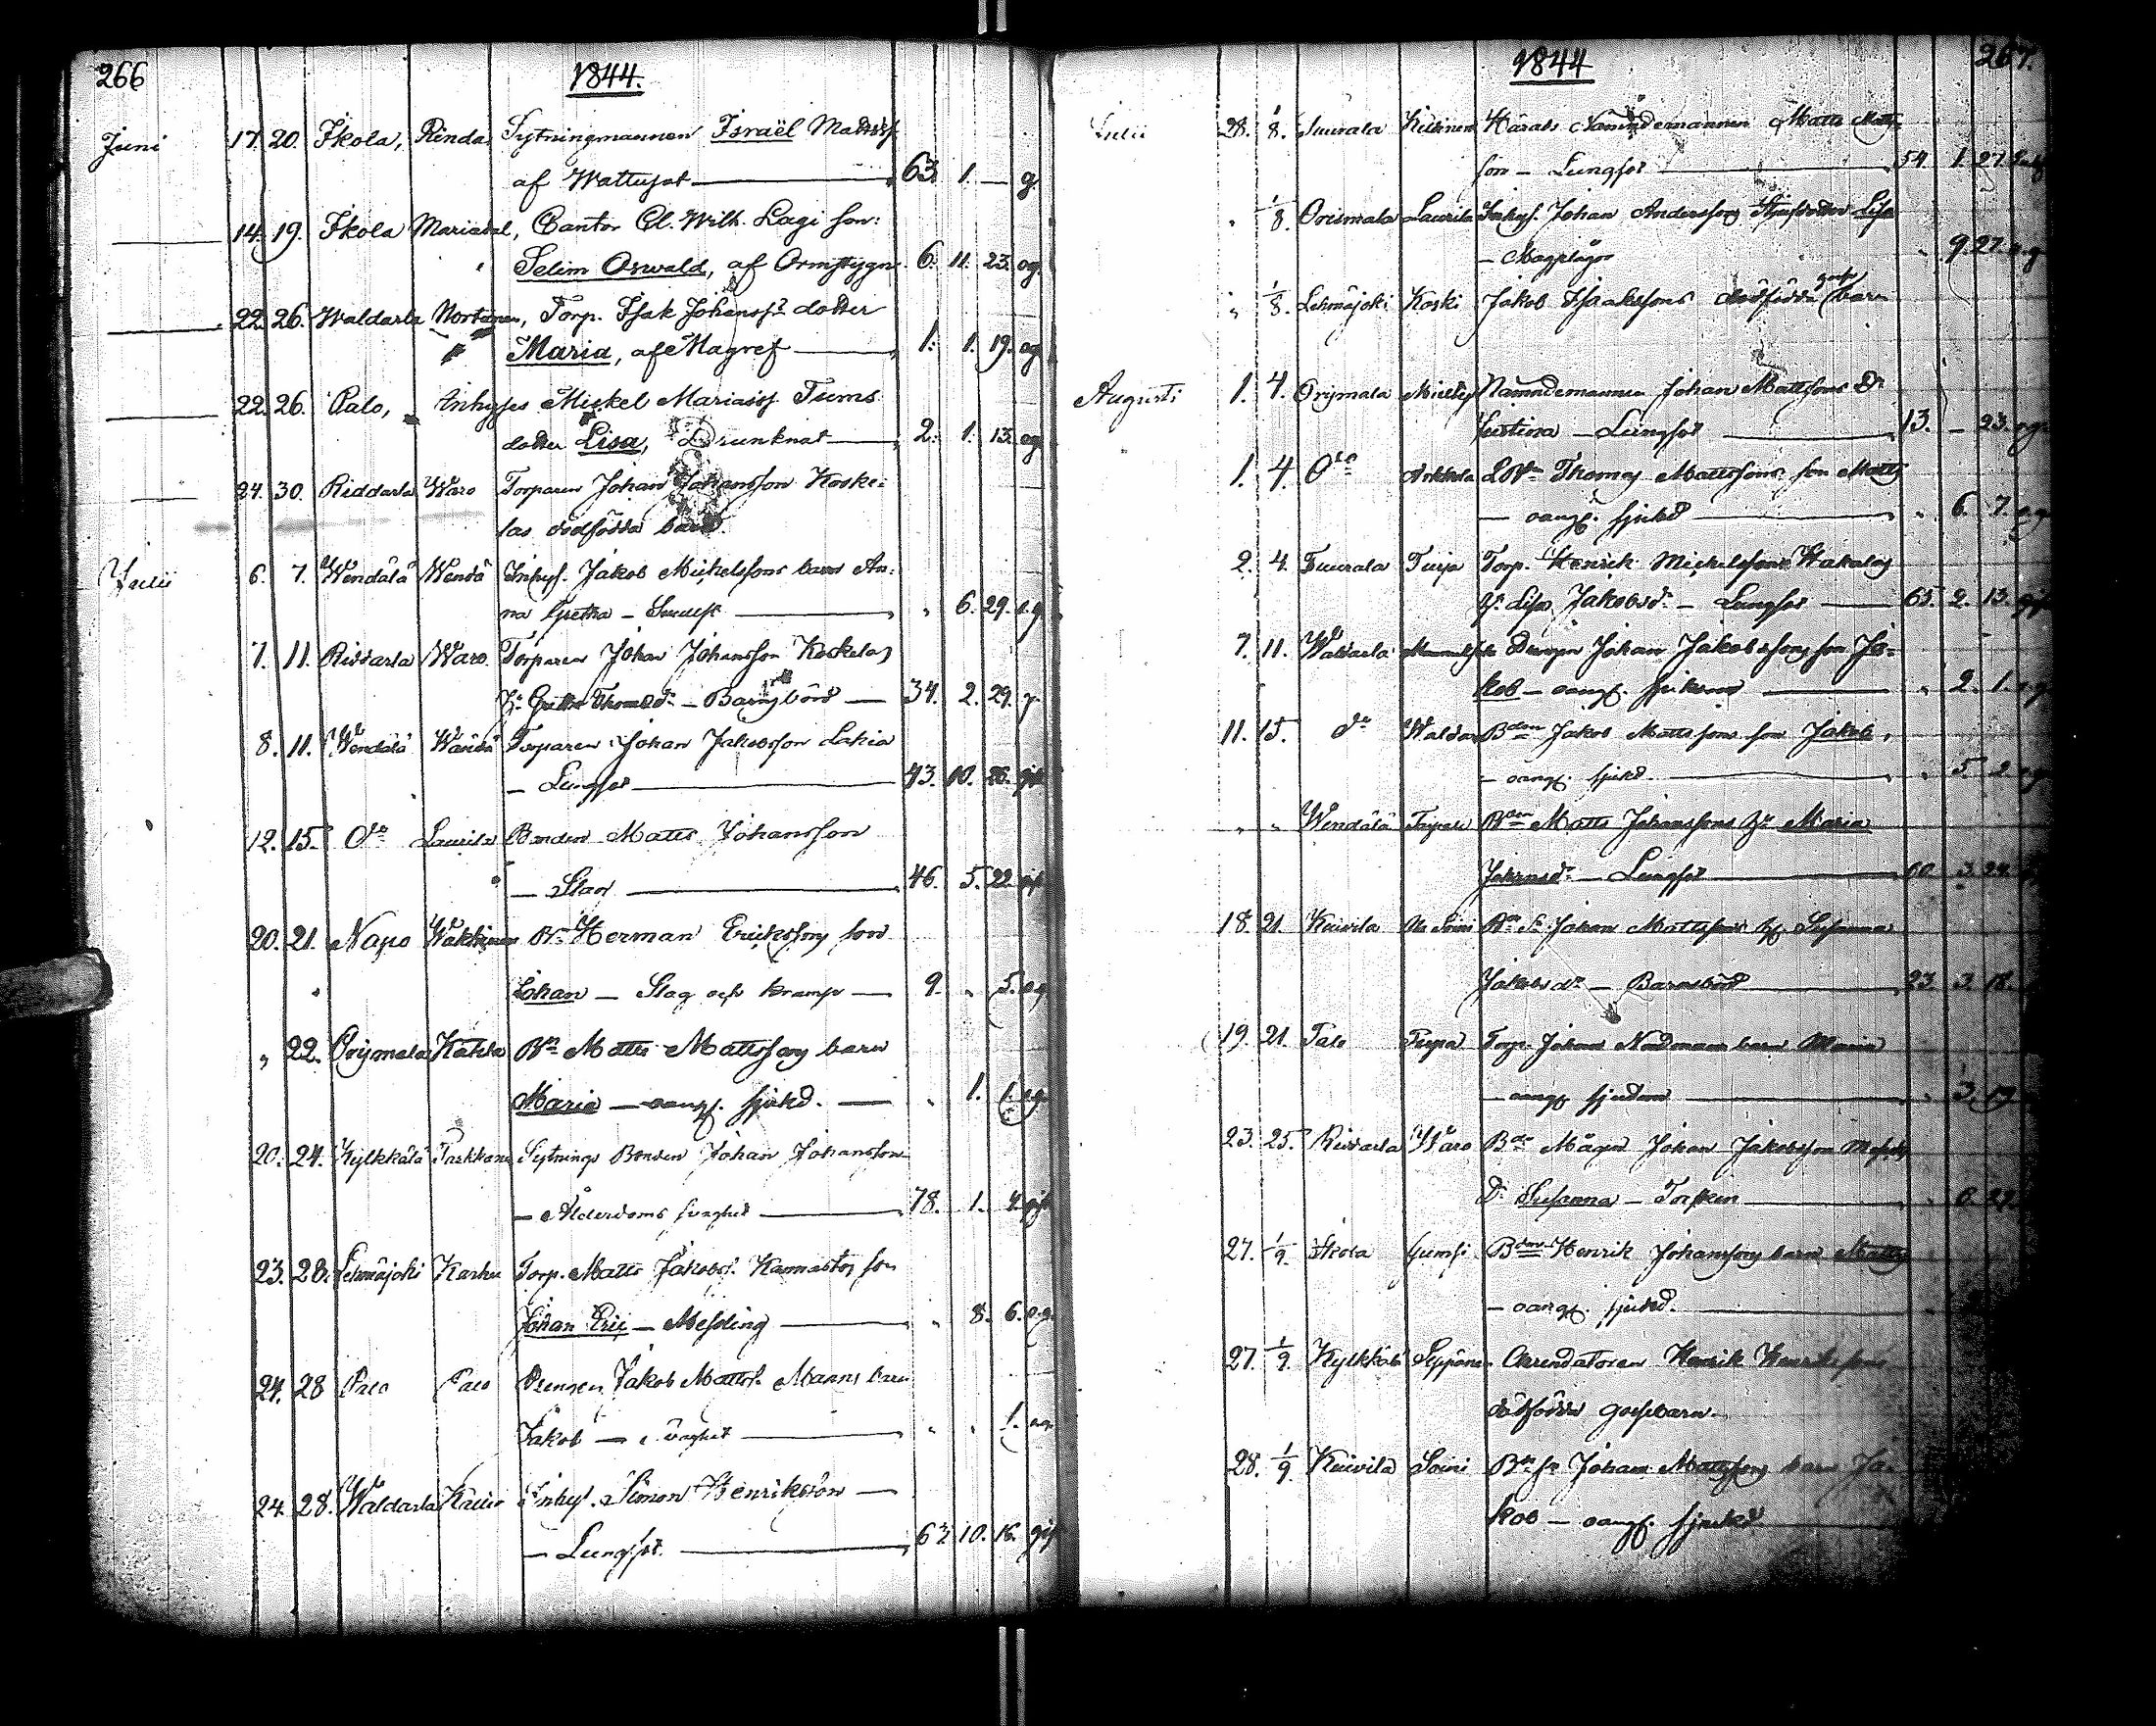 266
1844.
Juni 17. 20. Ikola, Rinda, Sytningmannen Israël Mattss.
af Wattusot — 63. 1. — g.
14. 19. Ikola Mariedal, Cantor Cl. Wilh. Lagi son:
Selim Oswald, af Ormstygn 6. 11. 23. og.
22. 26. Waldarla, Torp. Isak Johanss. dotter
Maria, af Magref — 1. 1. 19. og.
22. 26. Palo, Inhyses Mickel Mariass.
dotter Lisa, Drunknat — 2. 1. 13. og.
24. 30. Riddarla Waro Torparen Johan Johansson Koske-
las dödfödda barn.
Julii 6. 7. Wendälä Wendä Inhys. Jakob Mickelssons barn An-
na Gretha — 6. 29. o.g.
7. 11. Riddarla Waro Torparen Johan Johansson Koskelas
H. Gretha Thomasdr — Barnsbörd — 34. 2. 29. g.
8. 11. Wendälä Wändä Torparen Johan Jakobsson Lahia
— Lungsot — 43. 10. 26. gift
12. 15. Do Laurila Bonden Matts Johansson
— Slag — 46. 5. 22. gift
20. 21. Napo Bn Herman Erickssons son
Johan — Slag och kramp — 9. „ 5. og
„ 22. Orismala Kahila Bn Matts Mattssons barn
Maria — oangf. sjukd. — „ 1. 1. og.
20. 24. Kylkkälä Parkkari Sytnings Bonden Johan Johansson
— Ålderdoms svaghet — 78. 1. 4. gift
23. 28. Lehmäjoki Karhu Torp. Matts Jakobs. Kannastos son
Johan Eric — Messling — „ 8. 6. o.g.
24. 28 Palo Palo Drengen Jakob Mattss. Manns barn
Jakob — svaghet — „ „ 1. og
24. 28. Waldarla Inhys. Simon Henriksson —
— Lungsot. — 63 10. 16. gift
1844
267.
Julii 28. 1/8. Tuurala Härads Nämndemannen Matts Matts-
son — Lungsot — 54. 1. 27.
„ 1/8. Orismala Laurila Inhys. Johan Anderssons Lisa
— Magplågor „ 9. 27. og
„ 1/8. Lehmäjoki Koski Jakob Isakssons dödfödda goss barn
Augusti 1. 4. Orismala Nämndemannen Johan Mattssons Dr
Justina — Lungsot — 13. — 23. og
1. 4. Do Thomas Mattssons son Matts
— oangf. sjukd — „ 6. 7. og
2. 4. Tuurala Turja Torp. Henrik Mickelssons Wakalas
H. Lisa Jakobsdr — Lungsot — 65. 2. 13. gift
7. 11. Waldarla Drengen Johan Jakobssons son Ja-
kob — oangf. sjukdom — „ 2. 1. og
11. 15. do Bden Jakob Mattssons son Jakob,
— oangf. sjukd. — „ 5. 2. og
„ „ Wendälä Bden Matts Johanssons H. Maria
Johansdr — Lungsot — 60 3. 24.
18. 21. Kuivila Soini Bn Sn Johan Mattssons H. Susanna
Jakobsdr — Barnsbörd — 23. 3. 18.
19. 21. Palo Torp. Johan Nordmans barn Maria
— oangf sjukdom — „ 3. 19
23. 25. Riddarla Waro Bde Mågen Johan Jakobsson
Dr Susanna — Torsken — „ 0. 22
27. 1/9. Ikola Gumsi Bden Henrik Johanssons barn Matts
— oangf. sjukd. —
27. 1/9. Kylkkälä Seppänen Arrendatoren Henrik Henrikssons
dödfödda gossbarn.
28. 1/9. Kuivila Soini Bn Sn Johan Mattssons barn Ja-
kob — oangf. sjukd —